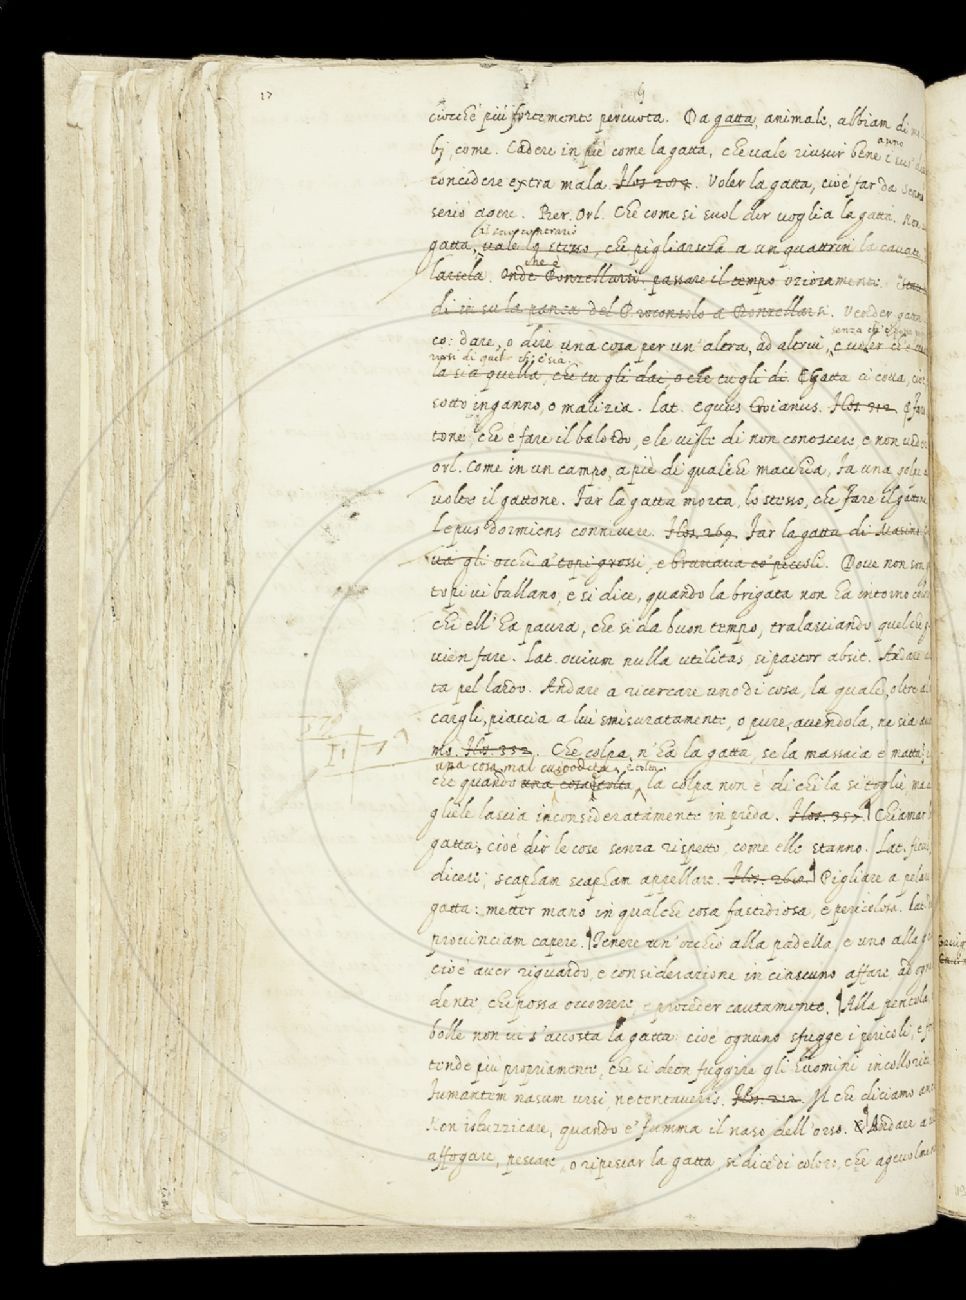 17
G
ciocché piú fortemente percuota. Da gatta, animale, abbiam di
bj, come. Cadere in piè come la gatta, che vale riuscir bene
anno
concidere extra mala Flos 284. Voler la gatta, cioé far da senno
serió agere. Ber. Orl. Che come si suol dir voglia la gatta. Non
il suo contrario
gatta, vale lo stesso, che pigliarsela a un quattrin la cavata
che è
lasciala. Onde Donzellarsi passare il tempo oziosamente.
di in su la panca del Proconsolo a Donzellarsi. Vender gatta
senza ch'
co: dare, o dire una cosa per un'altra, ad altrui, e voler ch'e
la sia quella, che tu gli dai, o che tu gli di. Gatta ci cova, cioè
sotto inganno, o malizia. Lat. equus Troianus. Flos. 312.
tone, che è fare il balordo, e le viste di non conoscere, e non veder
Orl. Come in un campo, a piè di qualche macchia, Fa una golpe
volte il gattone. Far la gatta morta, lo stesso, che fare il gattone
Lepus dormiens connivere. Flos. 269. Far la gatta di Masino
va gli occhi a' topi grossi, e brancava co' piccoli. Dove non son
topi vi ballano, e si dice, quando la brigata non ha intorno colui
che ell'ha paura, che si dà buon tempo, tralasciando quel che
vien fare. Lat. ovium nulla utilitas, si pastor absit. Andare
ta pel lardo. Andare a ricercare uno di cosa, la quale, oltre al
cargli, piaccia a lui smisuratamente, o pure, avendola, ne sia
mo. Flos. 352. Che colpa n'ha la gatta, se la massaia è matta;
una cosa mal custodita,
che quando una cosa, la colpa non è di chi la si toglie, ma
gliele lascia inconsideratamente in preda. Flos. 357. Chiamar
gatta, cioé dir le cose senza rispetto, come elle stanno. Lat. ficus,
dicere; scapham scapham appellare. Flos. 260. Pigliare a pelar
gatta: metter mano in qualche cosa fastidiosa, e pericolosa. Lat.
provinciam capere. Tenere un'occhio alla padella, e uno alla
cioé aver riguardo, e considerazione in ciascuno affare ad ogni
dente, che possa occorrere e proceder cautamente. Alla pentola
bolle non vi s'accosta la gatta: cioé ognuno sfugge i pericoli, e
tende più propriamente, che si deon fuggire gli huomini in collora
Fumantem nasum ursi, ne tentaveris. Flos. 212. Il che diciamo
Non istuzzicare, quando e' fumma il naso dell'orso. Andare a
affogare, pescare, o ripescar la gatta, si dice di coloro, che agevolmen